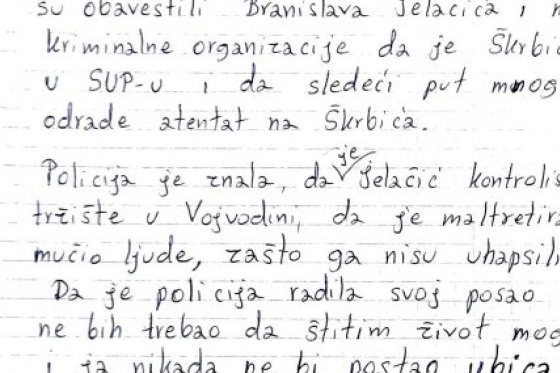 su obavestili Branislava Jelačića i
kriminalne organizacije da je Škrbi
u SUP-u i da sledeći put mnog
odrade atentat na Škrbića.
Policija je znala, da je Jelačić kontrolis
tržište u Vojvodini, da je maltretir
mučio ljude, zašto ga nisu uhapsili
Da je policija radila svoj posao
ne bih trebao da štitim život mog
i ja nikada ne bi postao ubica